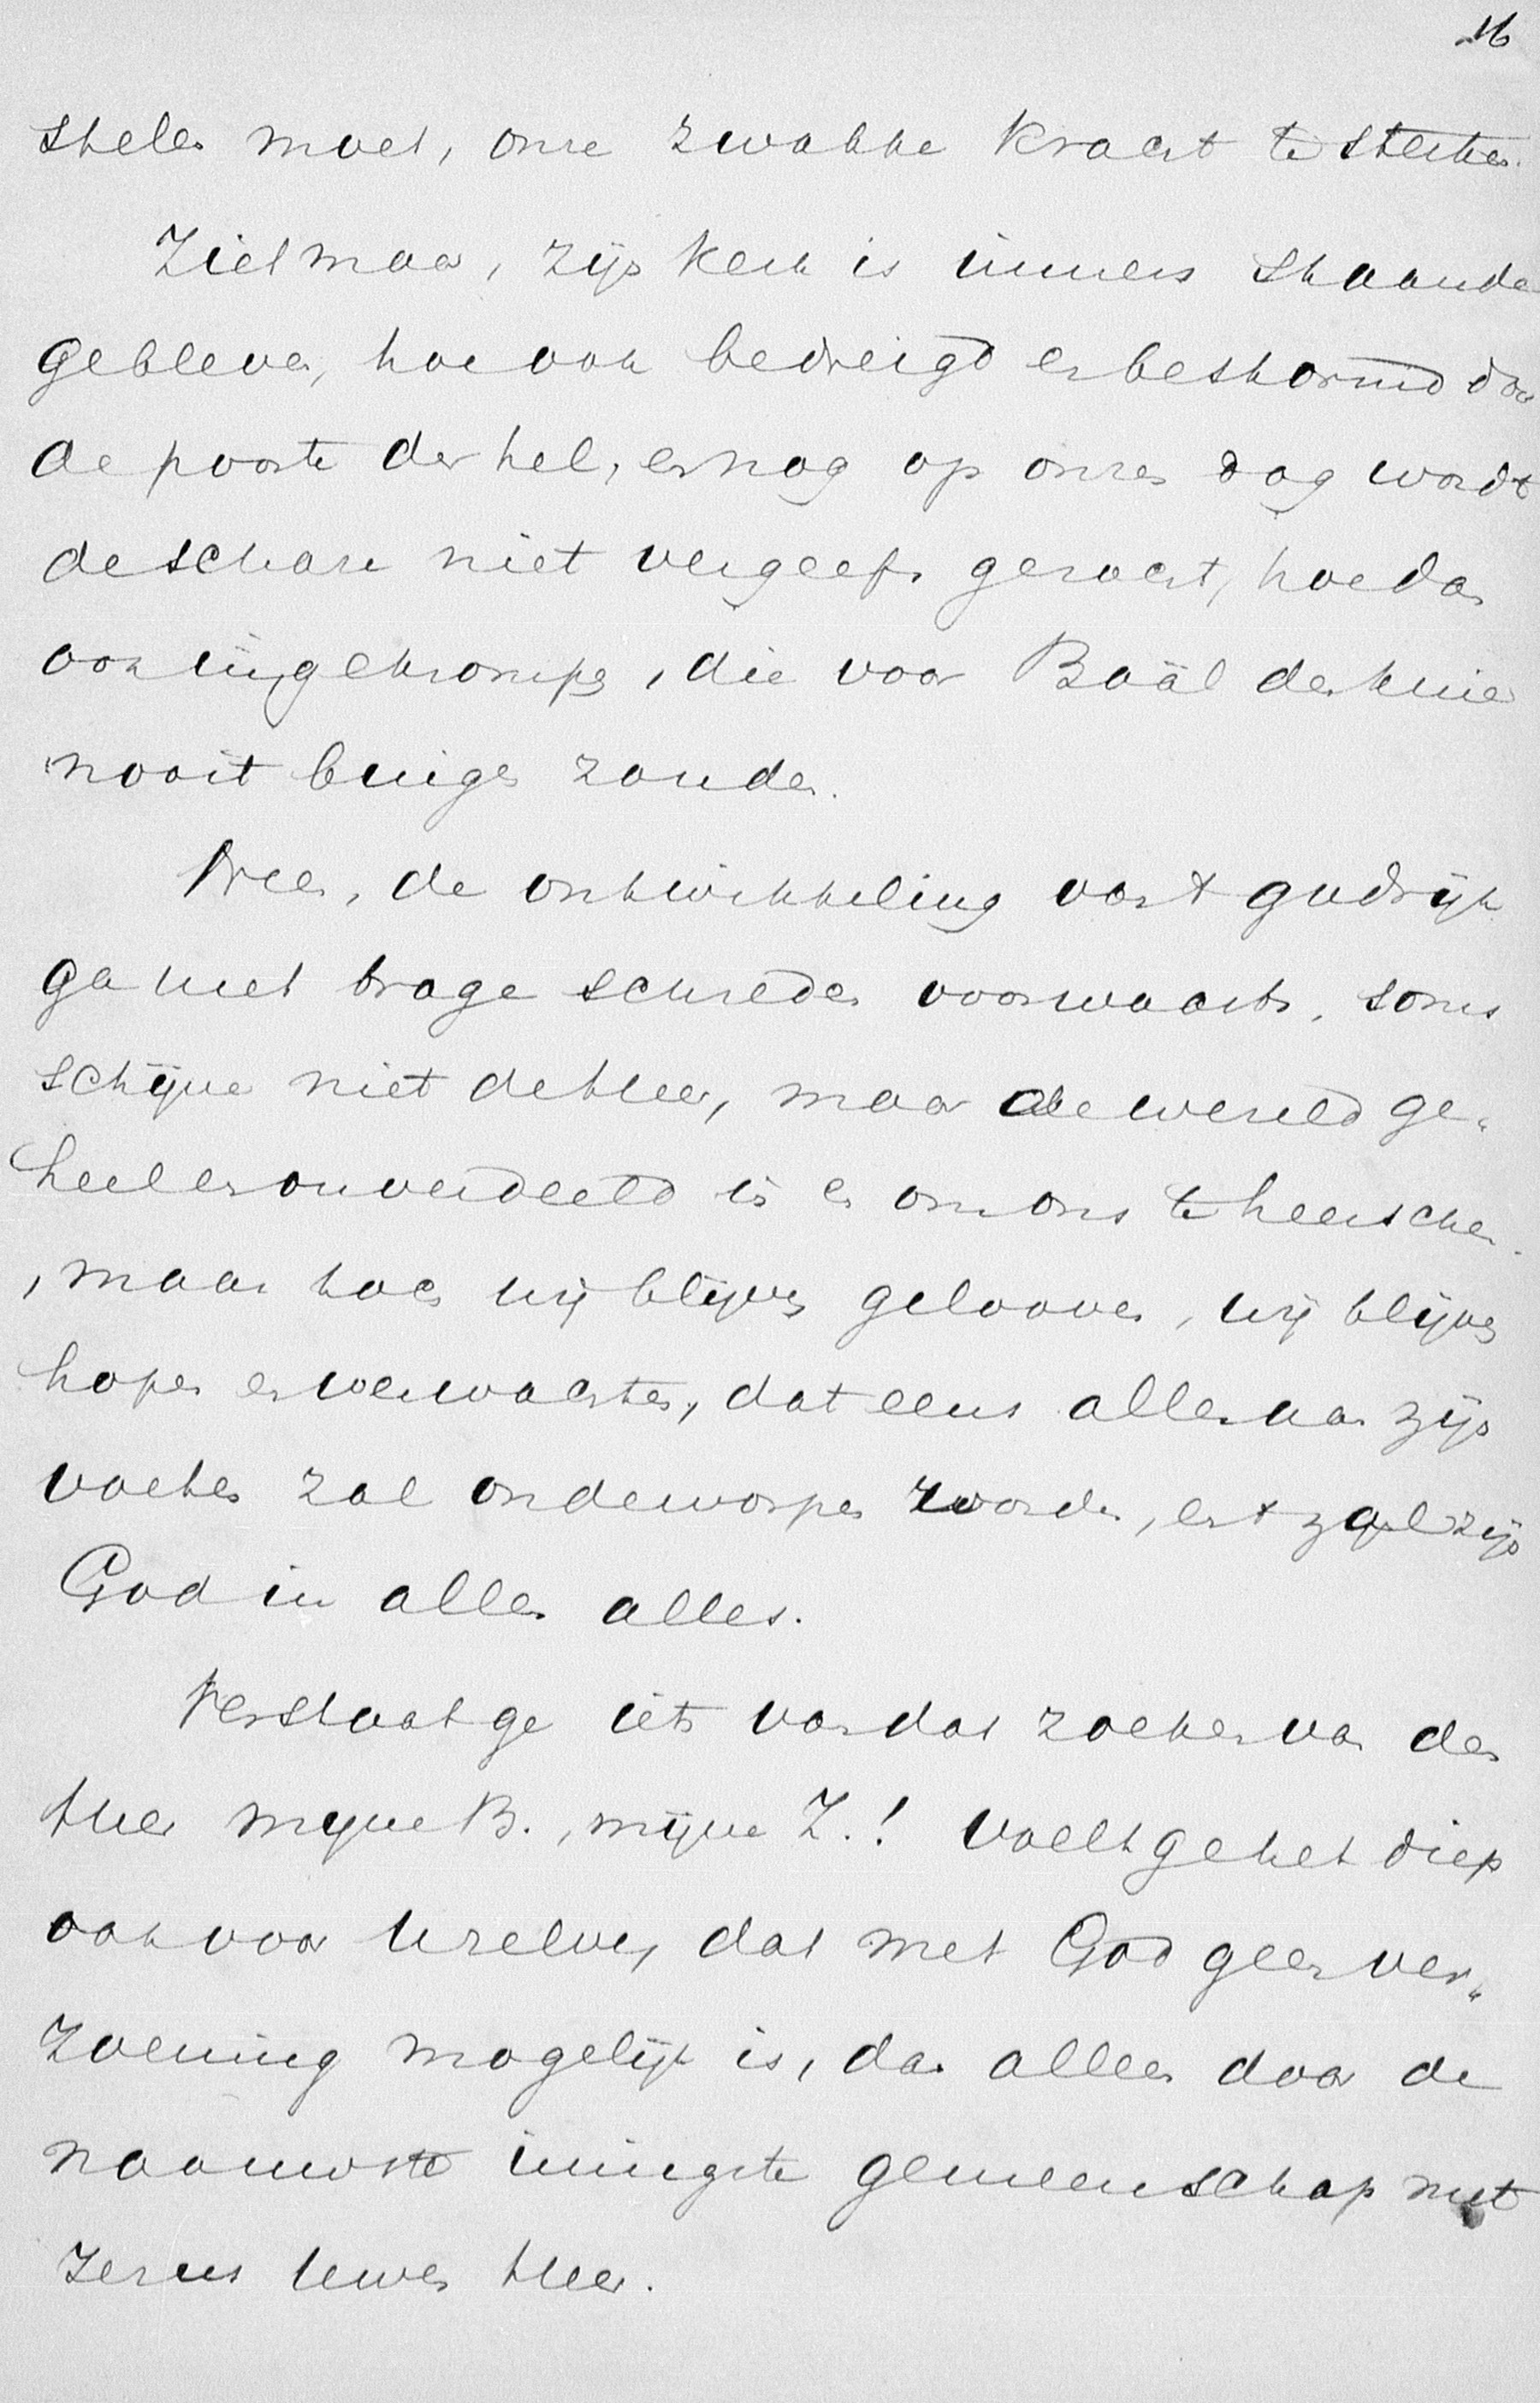 16
stelen moet, onze zwakke kracht te sterken.
Ziet maar, zijn kerk is immers staande
gebleven, hoe ook bedreigd en bestormd door
de poorten der hel, en nog op onzen dag wordt
de schare niet vergeefs gezocht, hoe dan
ook ingekrompen, die voor Baäl de knie
nooit buigen zouden.
Neen, de ontwikkeling van 't godsrijk
ga met trage schreden voorwaarts, soms
schijne niet de Heer, maar de wereld ge-
heel en onverdeeld in en om ons te heerschen.
, maar toch wij blijven gelooven, wij blijven
hopen en verwachten, dat eens allen aan zijn
voeten zal onderworpen worden, en 't zal zijn
God in allen alles.
Verstaat ge iets van dat zoeken van den
Heer mijne B., mijne Z.! Voelt ge het diep
ook voor Uzelven, dat met God geen ver-
zoening mogelijk is, dan alleen door de
naauwste innigste gemeenschap met
Jezus Uwen Heer.